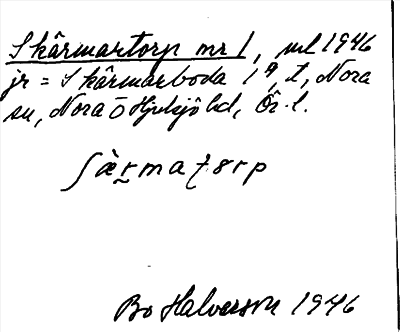 Skärmartorp nr 1, ml 1946
jr = Skärmarboda 1 4, 2, Nora
sn, Nora o Hjulsjö hd, Ör. l.
ʃæ̀r̥matɷrp
Bo Halvarson 1946